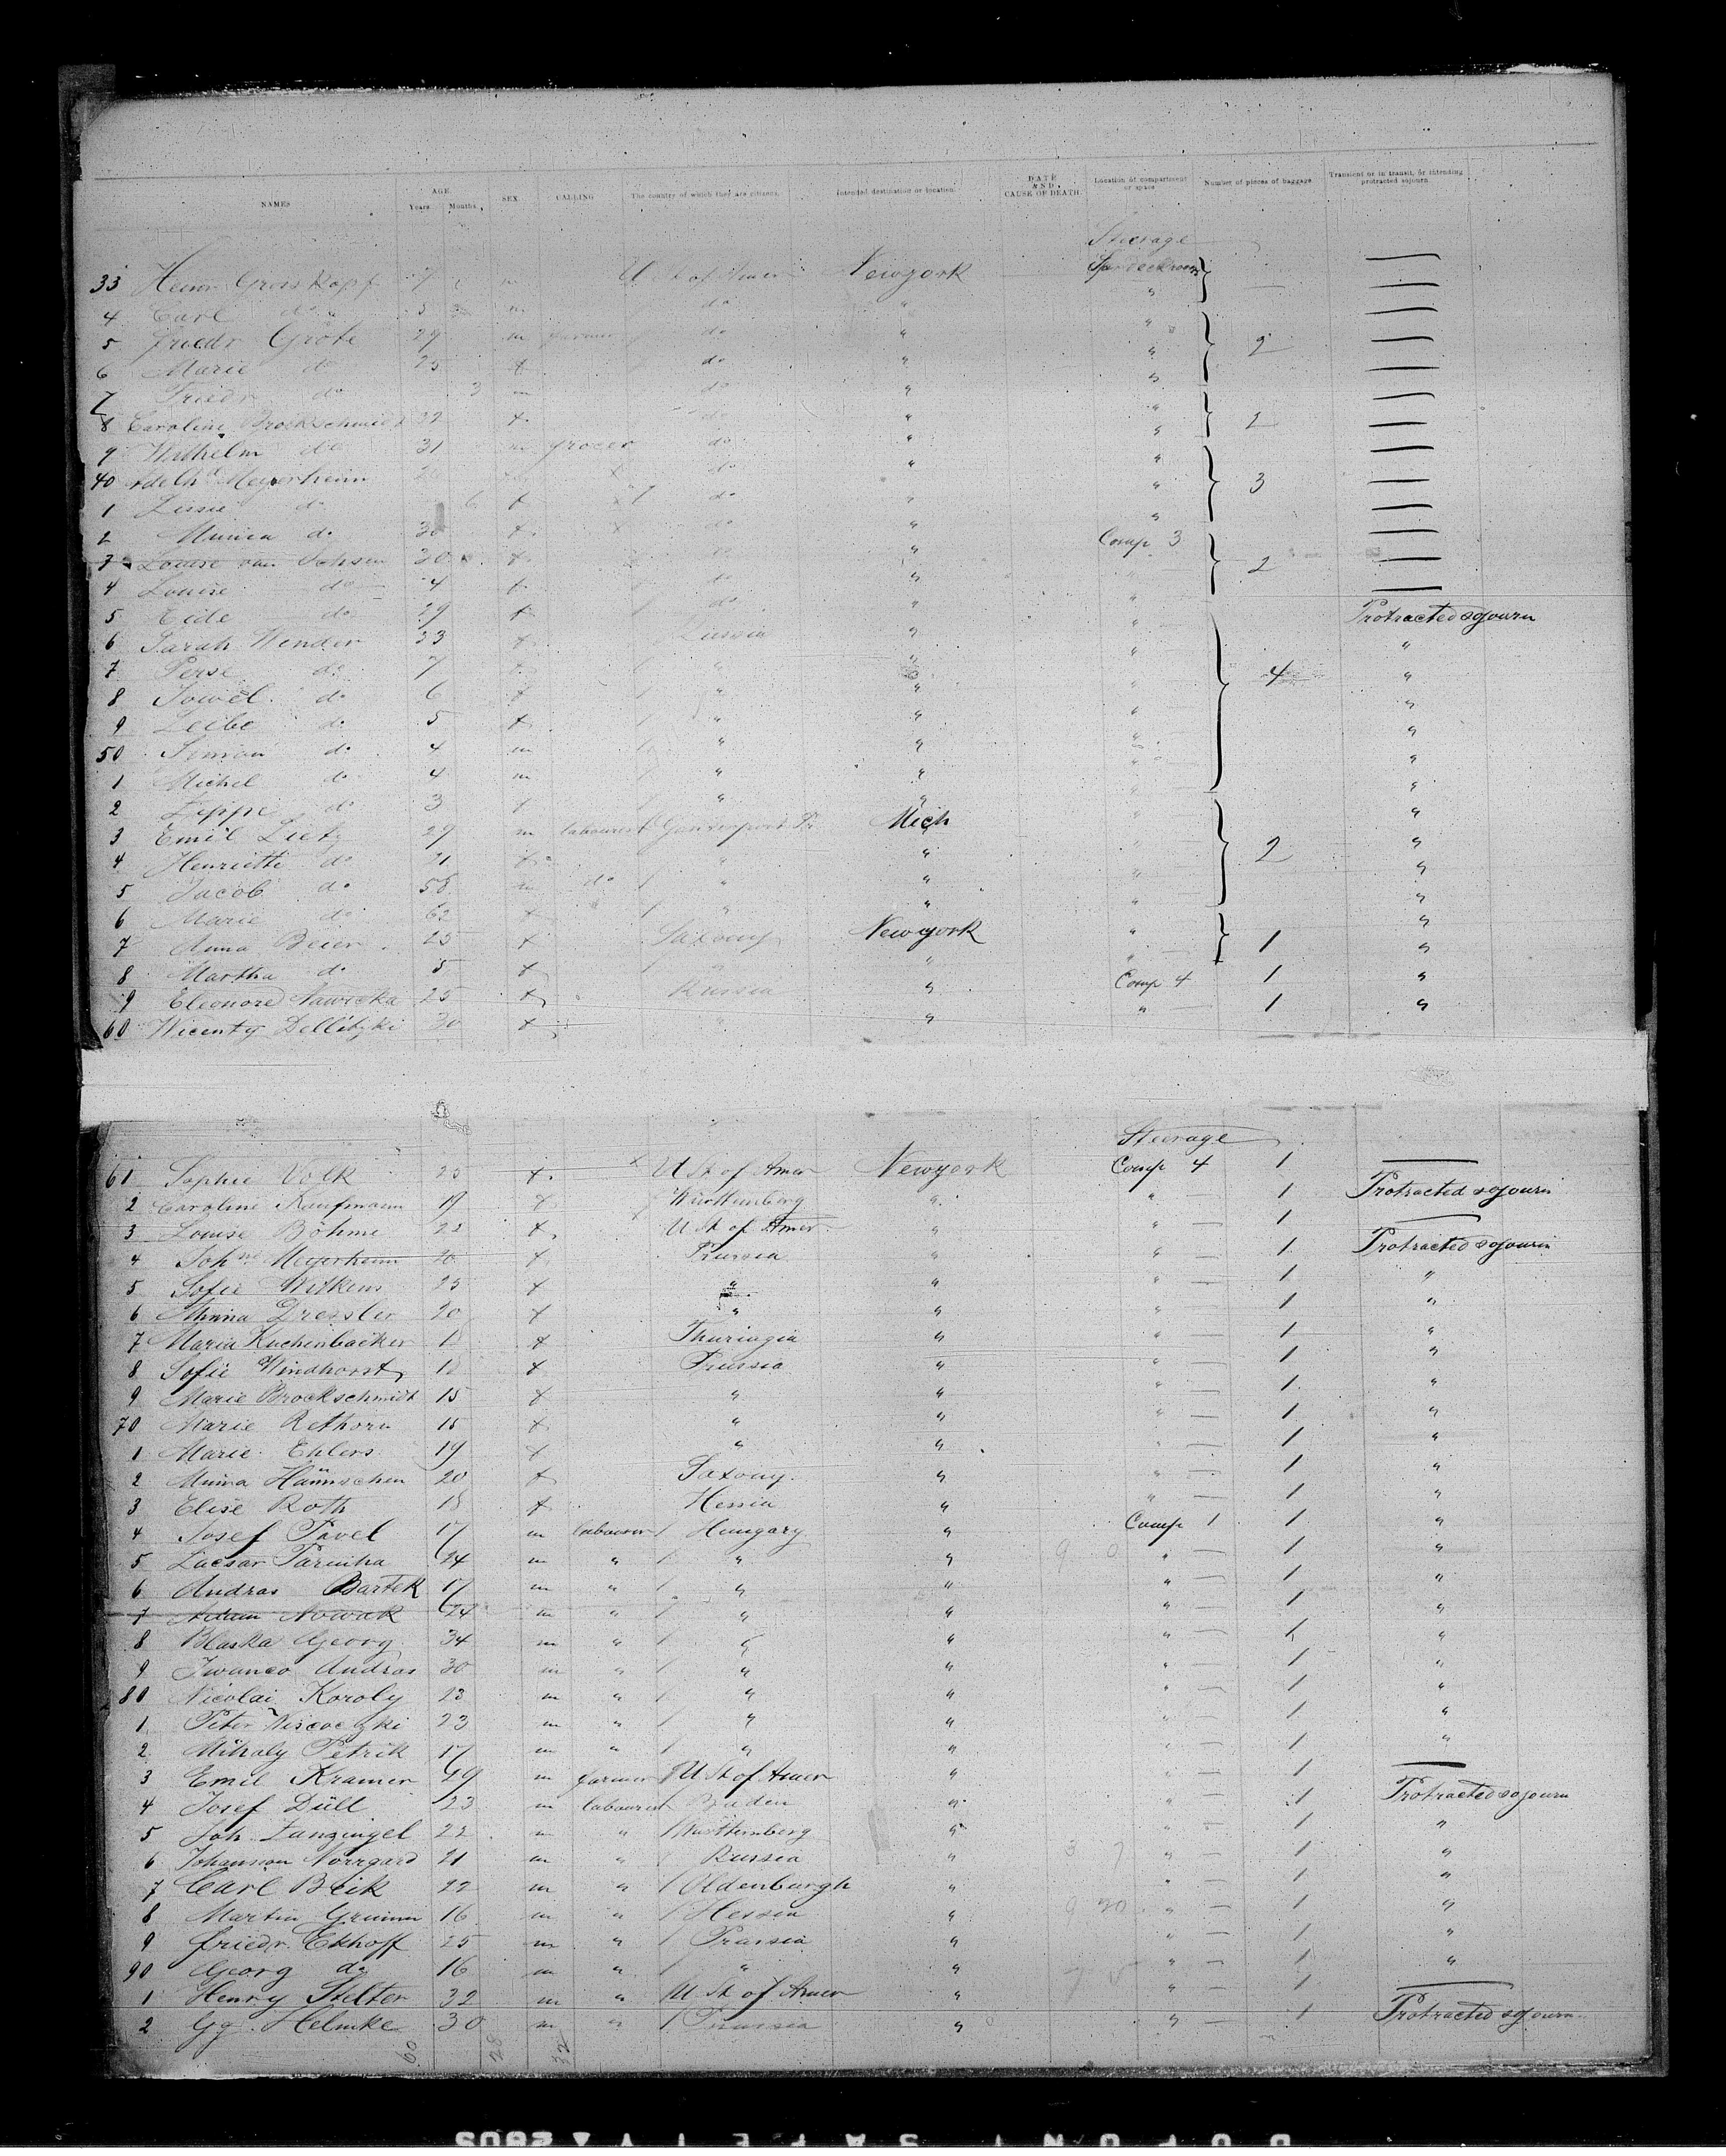 NAMES AGE. Years Months SEX CALLING The country of which they are citizens. Intended destination or location. DATE AND CAUSE OF DEATH. Location of compartment or space Number of pieces of baggage Transient or in transit, or intending protracted sojourn
Steerage
33 Heinr Grosskopf 7 m U St of Amer Newyork —
4 Carl do m do " " —
5 Friedr Grote 29 m farmer do " " —
6 Marie do 25 f do " " 2 —
7 Friedr do 3 m do " " —
8 Caroline Brockschmidt 32 f do " " —
9 Wilhelm do 31 m grocer do " " 2 —
40 Adelhd Meyerheim do " " —
1 Lissie do 6 f do " " 3 —
2 Minna do 30 f do " " —
3 Louise van Ochsen 30 f do " Comp 3 —
4 Louise do 4 f do " " 2 —
5 Eide do 29 f do " " —
6 Sarah Wender 33 f Russia " " Protracted sojourn
7 Perse do 7 f " " " "
8 Jowel do 6 f " " " 4 "
9 Leibe do 5 f " " " "
50 Simon do 4 m " " " "
1 Michel do 4 m " " " "
2 Zippe do 3 f " " " "
3 Emil Lietz 29 m labourer Mich " "
4 Henriette do 21 f " " " 2 "
5 Jacob do 58 m do " " " "
6 Marie do 62 f " " " "
7 Anna Beier 25 f Saxony Newyork " "
8 Martha do 5 f " " " 1 "
9 Eleonore Nawicka 25 f Russia " Comp 4 1 "
60 Wicenty Dellitzki 30 f " " " 1 "
Steerage
61 Sophie Volk 25 f U St of Amer Newyork Comp 4 1 —
2 Caroline Kaufmann 19 f Württemberg " " 1 Protracted sojourn
3 Louise Böhme 22 f U St of Amer " " 1 —
4 Johne Meyerheim 20 f Prussia " " 1 Protracted sojourn
5 Sofie Wilkens 25 f " " " 1 "
6 Minna Dressler 20 f " " " 1 "
7 Maria Kuchenbäcker f Thuringia " " 1 "
8 Sofie Windhorst f Prussia " " 1 "
9 Marie Brockschmidt 15 f " " " 1 "
70 Marie Rethorn 15 f " " " 1 "
1 Marie Ehlers 19 f " " " 1 "
2 Minna Hännschen 20 f Saxony " " 1 "
3 Elise Roth 18 f Hessia " " 1 "
4 Josef Pavel 17 m labourer Hungary " Comp 1 1 "
5 Lacsar Parniha 24 m " " " " 1 "
6 Andras Bartek 17 m " " " " 1 "
7 Adam Nowak 24 m " " " " 1 "
8 Blaska Georg 34 m " " " " 1 "
9 Iwanco Andras 30 m " " " " 1 "
80 Nicolai Koroly 23 m " " " " 1 "
1 Peter 23 m " " " " 1 "
2 Mihaly Petrik 17 m " " " " 1 "
3 Emil Kramer 29 m farmer U St of Amer " " 1 —
4 Josef Düll 23 m labourer Baden " " 1 Protracted sojourn
5 Joh. Zanzingel 22 m " Württemberg " " 1 "
6 Johannson Norrgard 21 m " Russia " " 1 "
7 Carl Beik 22 m " Oldenburgh " " 1 "
8 Martin Grumm 16 m " Hessia " " 1 "
9 Friedr. Ekhoff 25 m " Prussia " " 1 "
90 Georg do 16 m " " " " 1 "
1 Henry Stelter 32 m " U St of Amer " " 1 —
2 Gg. Helmke 30 m " Prussia " " 1 Protracted sojourn
60 28 32